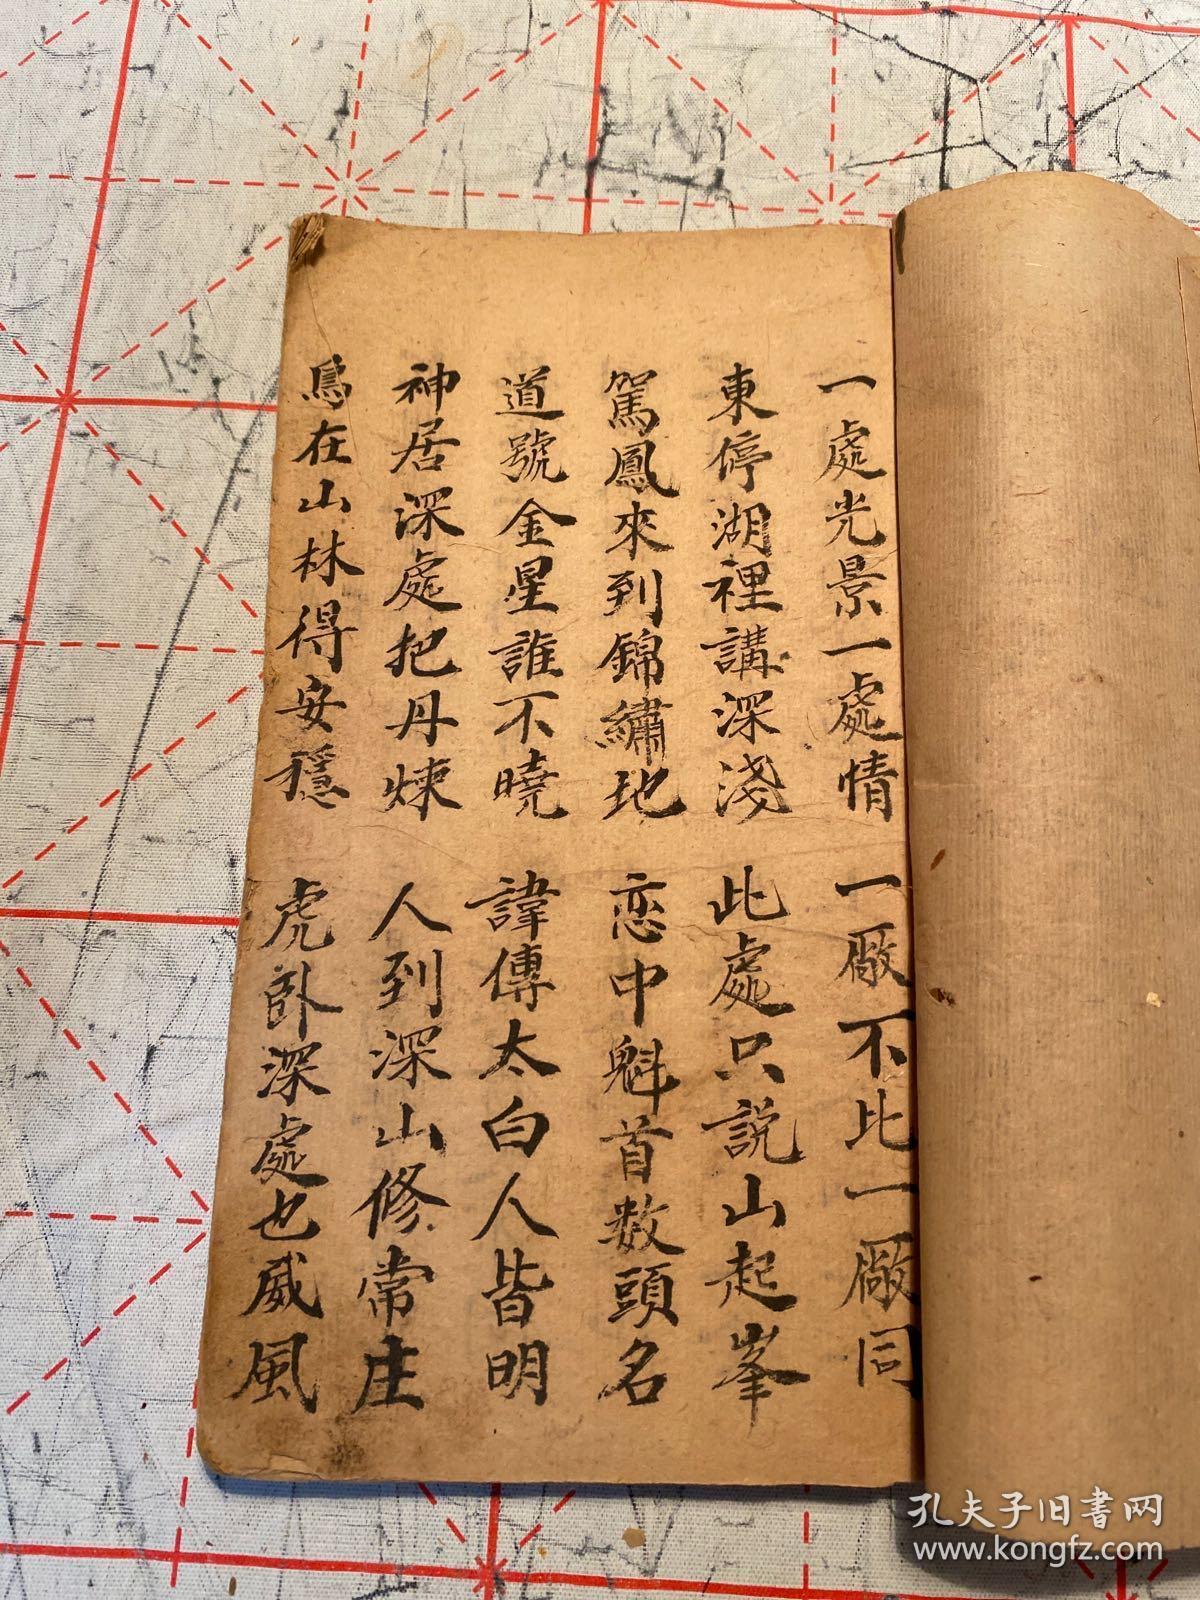 一處光景一處情　一厰不比一厰同
東停湖裡講深淺　此處只説山起峯
駕鳳來到錦繡地　恋中魁首数頭名
道號金星誰不曉　諱傳太白人皆明
神居深處把丹煉　人到深山修常庄
爲在山林得安穩　虎卧深處也威風
孔夫子旧書网
www.kongfz.com